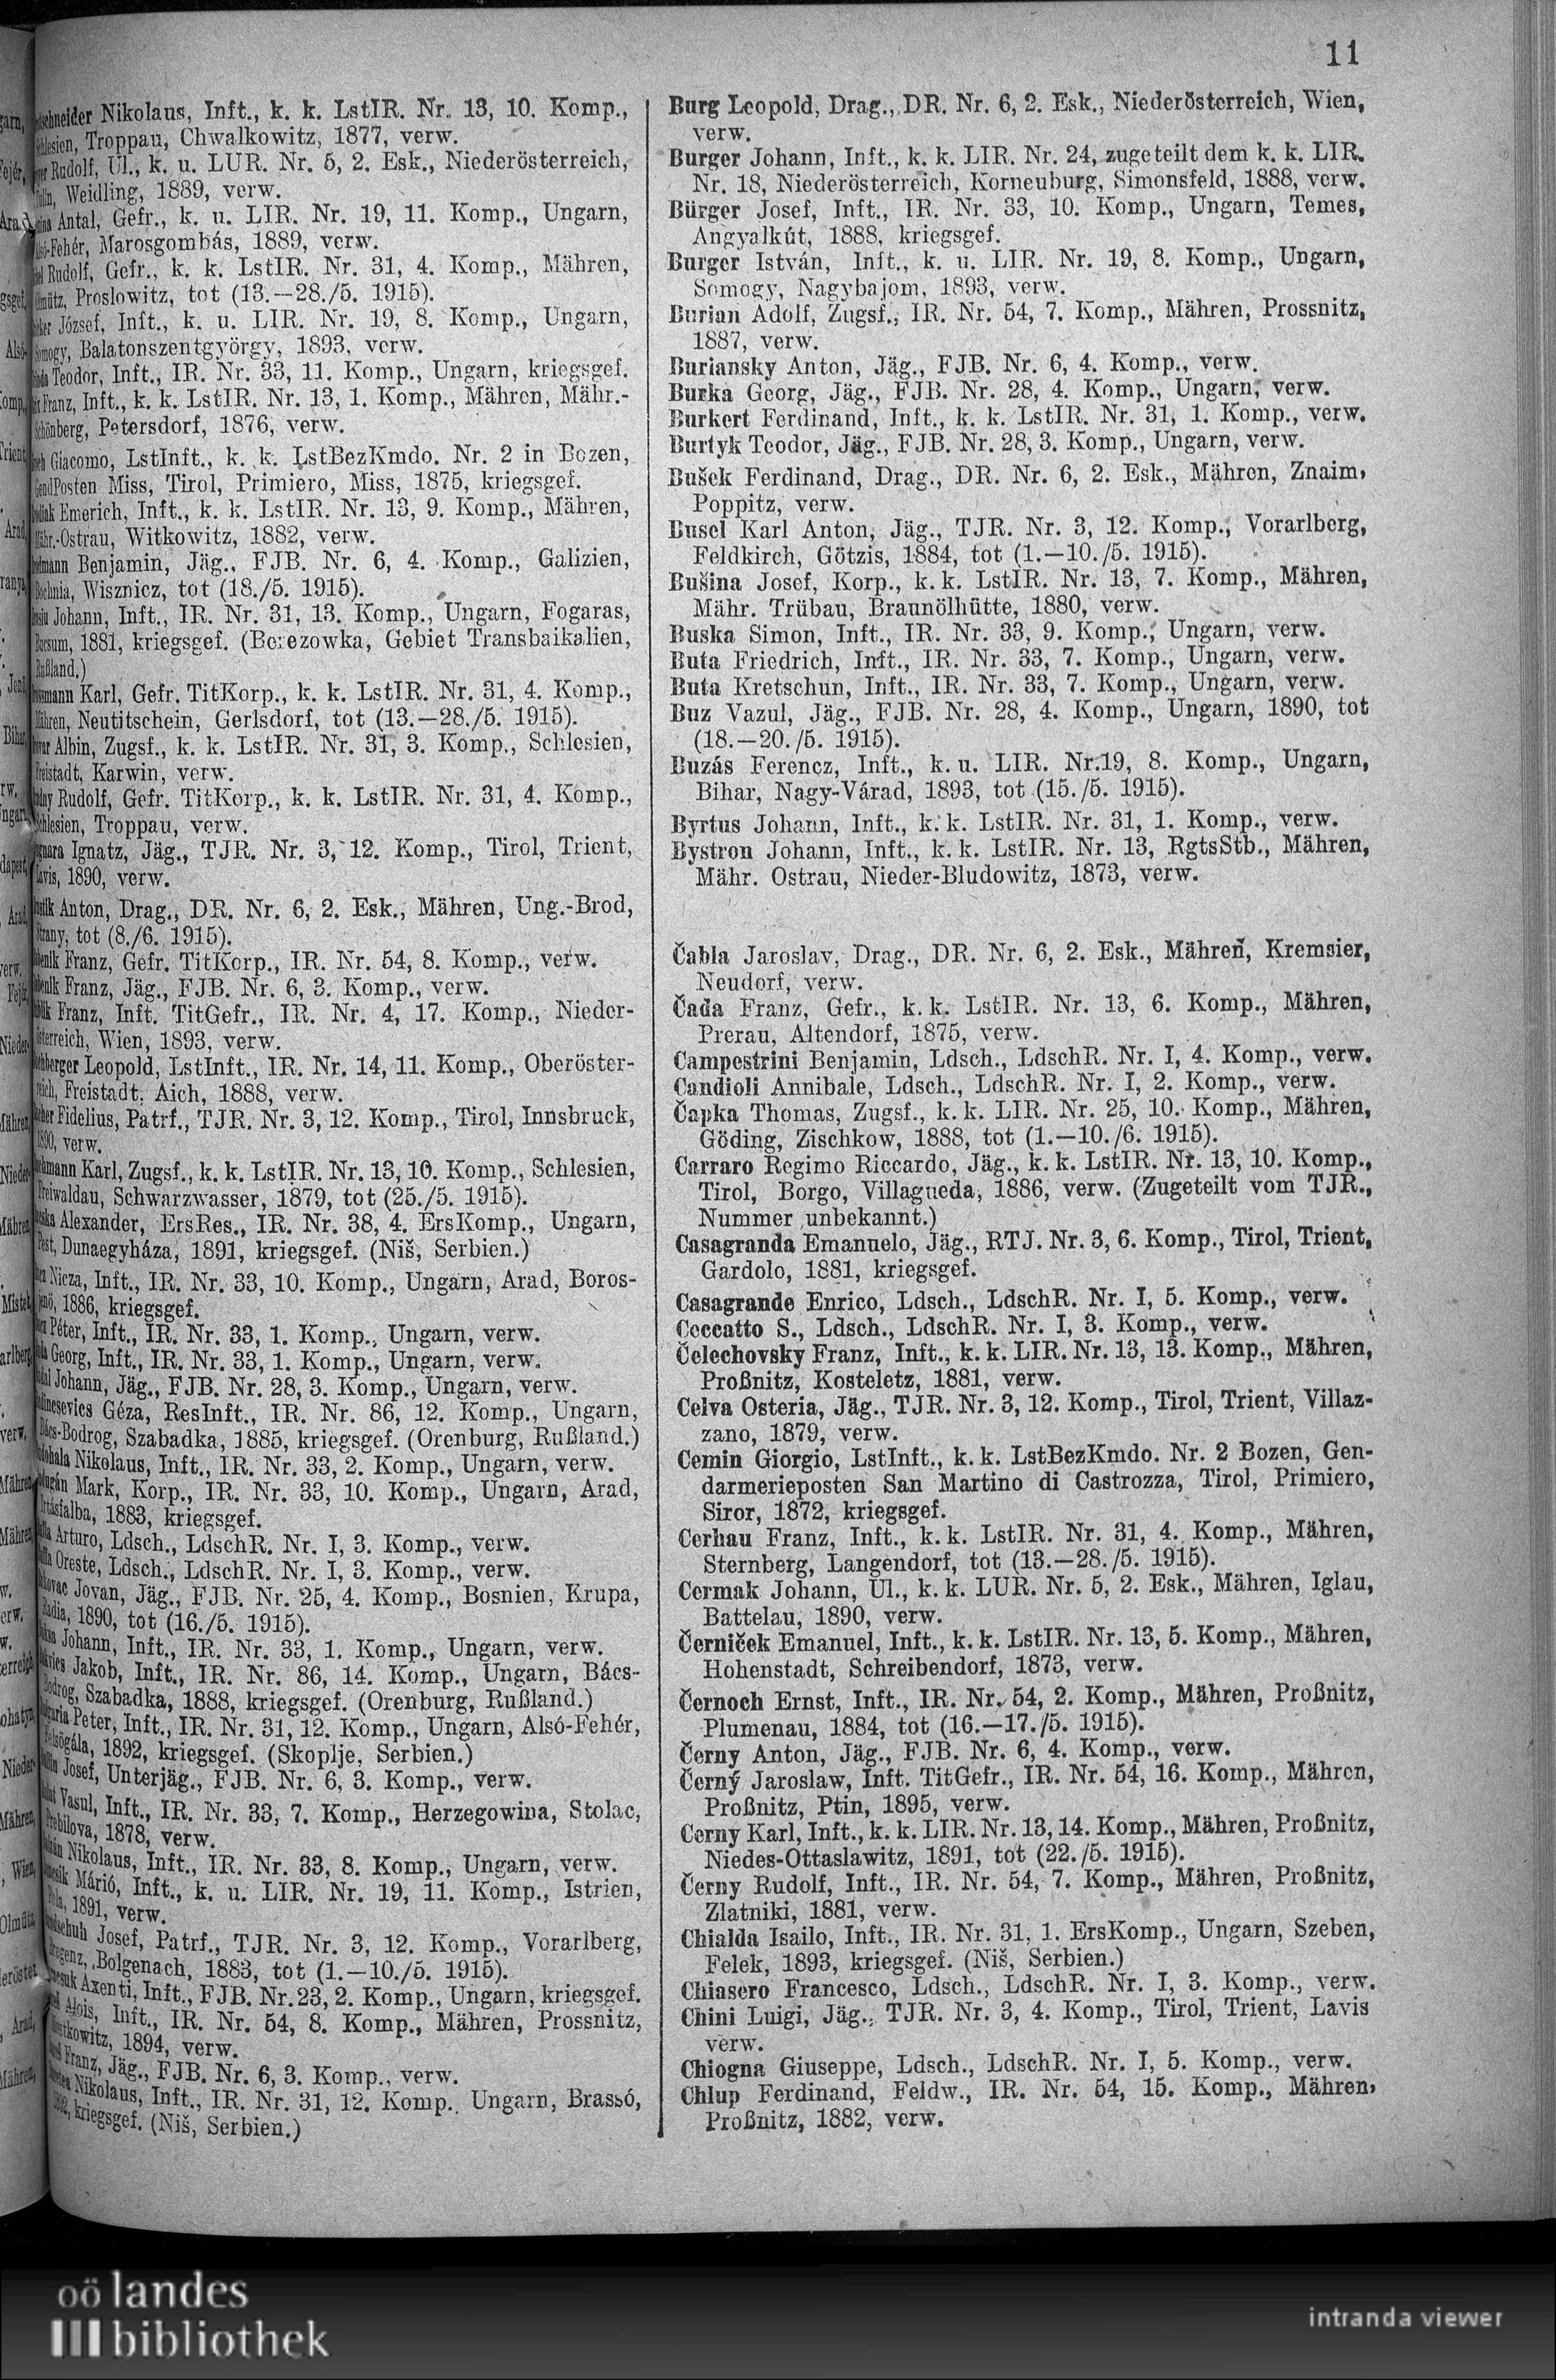 11
Nikolaus, Inft., k. k. LstIR. Nr. 13, 10. Komp.,
Troppau, Chwalkowitz, 1877, verw.
Rudolf, Ul., k. u. LUR. Nr. 5, 2. Esk., Niederösterreich,
Weidling, 1889, verw.
Antal, Gefr., k. u. LIR. Nr. 19, 11. Komp., Ungarn,
Marosgombás, 1889, verw.
Rudolf, Gefr., k. k. LstIR. Nr. 31, 4. Komp., Mähren,
Proslowitz, tot (13.—28./5. 1915).
József, Inft., k. u. LIR. Nr. 19, 8. Komp., Ungarn,
Balatonszentgyörgy, 1893, verw.
Teodor, Inft., IR. Nr. 33, 11. Komp., Ungarn, kriegsgef.
Franz, Inft., k. k. LstIR. Nr. 13, 1. Komp., Mähren, Mähr.-
Petersdorf, 1876, verw.
Giacomo, LstInft., k. k. LstBezKmdo. Nr. 2 in Bozen,
GendPosten Miss, Tirol, Primiero, Miss, 1875, kriegsgef.
Emerich, Inft., k. k. LstIR. Nr. 13, 9. Komp., Mähren,
Mähr.-Ostrau, Witkowitz, 1882, verw.
Benjamin, Jäg., FJB. Nr. 6, 4. Komp., Galizien,
Wisznicz, tot (18./5. 1915).
Johann, Inft., IR. Nr. 31, 13. Komp., Ungarn, Fogaras,
1881, kriegsgef. (Berezowka, Gebiet Transbaikalien,
Rußland.)
Karl, Gefr. TitKorp., k. k. LstIR. Nr. 31, 4. Komp.,
Mähren, Neutitschein, Gerlsdorf, tot (13.—28./5. 1915).
Albin, Zugsf., k. k. LstIR. Nr. 31, 3. Komp., Schlesien,
Freistadt, Karwin, verw.
Rudolf, Gefr. TitKorp., k. k. LstIR. Nr. 31, 4. Komp.,
Schlesien, Troppau, verw.
Ignatz, Jäg., TJR. Nr. 3, 12. Komp., Tirol, Trient,
Lavis, 1890, verw.
Anton, Drag., DR. Nr. 6, 2. Esk., Mähren, Ung.-Brod,
tot (8./6. 1915).
Franz, Gefr. TitKorp., IR. Nr. 54, 8. Komp., verw.
Franz, Jäg., FJB. Nr. 6, 3. Komp., verw.
Franz, Inft. TitGefr., IR. Nr. 4, 17. Komp., Nieder-
österreich, Wien, 1893, verw.
Leopold, LstInft., IR. Nr. 14, 11. Komp., Oberöster-
reich, Freistadt, Aich, 1888, verw.
Fidelius, Patrf., TJR. Nr. 3, 12. Komp., Tirol, Innsbruck,
1890, verw.
Karl, Zugsf., k. k. LstIR. Nr. 13, 10. Komp., Schlesien,
Freiwaldau, Schwarzwasser, 1879, tot (25./5. 1915).
Alexander, ErsRes., IR. Nr. 38, 4. ErsKomp., Ungarn,
Pest, Dunaegyháza, 1891, kriegsgef. (Niš, Serbien.)
Nicza, Inft., IR. Nr. 33, 10. Komp., Ungarn, Arad, Boros-
jenö, 1886, kriegsgef.
Péter, Inft., IR. Nr. 33, 1. Komp., Ungarn, verw.
Georg, Inft., IR. Nr. 33, 1. Komp., Ungarn, verw.
Johann, Jäg., FJB. Nr. 28, 3. Komp., Ungarn, verw.
Géza, ResInft., IR. Nr. 86, 12. Komp., Ungarn,
Bács-Bodrog, Szabadka, 1885, kriegsgef. (Orenburg, Rußland.)
Nikolaus, Inft., IR. Nr. 33, 2. Komp., Ungarn, verw.
Mark, Korp., IR. Nr. 33, 10. Komp., Ungarn, Arad,
1883, kriegsgef.
Arturo, Ldsch., LdschR. Nr. I, 3. Komp., verw.
Oreste, Ldsch., LdschR. Nr. I, 3. Komp., verw.
Jovan, Jäg., FJB. Nr. 25, 4. Komp., Bosnien, Krupa,
1890, tot (16./5. 1915).
Johann, Inft., IR. Nr. 33, 1. Komp., Ungarn, verw.
Jakob, Inft., IR. Nr. 86, 14. Komp., Ungarn, Bács-
Bodrog, Szabadka, 1888, kriegsgef. (Orenburg, Rußland.)
Peter, Inft., IR. Nr. 31, 12. Komp., Ungarn, Alsó-Fehér,
1892, kriegsgef. (Skoplje, Serbien.)
Josef, Unterjäg., FJB. Nr. 6, 3. Komp., verw.
Vasul, Inft., IR. Nr. 33, 7. Komp., Herzegowina, Stolac,
1878, verw.
Nikolaus, Inft., IR. Nr. 33, 8. Komp., Ungarn, verw.
Márió, Inft., k. u. LIR. Nr. 19, 11. Komp., Istrien,
1891, verw.
Josef, Patrf., TJR. Nr. 3, 12. Komp., Vorarlberg,
Bregenz, Bolgenach, 1883, tot (1.—10./5. 1915).
Axenti, Inft., FJB. Nr. 23, 2. Komp., Ungarn, kriegsgef.
Alois, Inft., IR. Nr. 54, 8. Komp., Mähren, Prossnitz,
1894, verw.
Franz, Jäg., FJB. Nr. 6, 3. Komp., verw.
Nikolaus, Inft., IR. Nr. 31, 12. Komp., Ungarn, Brassó,
kriegsgef. (Niš, Serbien.)
Burg Leopold, Drag., DR. Nr. 6, 2. Esk., Niederösterreich, Wien,
verw.
Burger Johann, Inft., k. k. LIR. Nr. 24, zugeteilt dem k. k. LIR.
Nr. 18, Niederösterreich, Korneuburg, Simonsfeld, 1888, verw.
Bürger Josef, Inft., IR. Nr. 33, 10. Komp., Ungarn, Temes,
Angyalkút, 1888, kriegsgef.
Burger István, Inft., k. u. LIR. Nr. 19, 8. Komp., Ungarn,
Somogy, Nagybajom, 1893, verw.
Burian Adolf, Zugsf., IR. Nr. 54, 7. Komp., Mähren, Prossnitz,
1887, verw.
Buriansky Anton, Jäg., FJB. Nr. 6, 4. Komp., verw.
Burka Georg, Jäg., FJB. Nr. 28, 4. Komp., Ungarn, verw.
Burkert Ferdinand, Inft., k. k. LstIR. Nr. 31, 1. Komp., verw.
Burtyk Teodor, Jäg., FJB. Nr. 28, 3. Komp., Ungarn, verw.
Bušek Ferdinand, Drag., DR. Nr. 6, 2. Esk., Mähren, Znaim,
Poppitz, verw.
Busel Karl Anton, Jäg., TJR. Nr. 3, 12. Komp., Vorarlberg,
Feldkirch, Götzis, 1884, tot (1.—10./5. 1915).
Bušina Josef, Korp., k. k. LstIR. Nr. 13, 7. Komp., Mähren,
Mähr. Trübau, Braunölhütte, 1880, verw.
Buska Simon, Inft., IR. Nr. 33, 9. Komp., Ungarn, verw.
Buta Friedrich, Inft., IR. Nr. 33, 7. Komp., Ungarn, verw.
Buta Kretschun, Inft., IR. Nr. 33, 7. Komp., Ungarn, verw.
Buz Vazul, Jäg., FJB. Nr. 28, 4. Komp., Ungarn, 1890, tot
(18.—20./5. 1915).
Buzás Ferencz, Inft., k. u. LIR. Nr. 19, 8. Komp., Ungarn,
Bihar, Nagy-Várad, 1893, tot (15./5. 1915).
Byrtus Johann, Inft., k. k. LstIR. Nr. 31, 1. Komp., verw.
Bystron Johann, Inft., k. k. LstIR. Nr. 13, RgtsStb., Mähren,
Mähr. Ostrau, Nieder-Bludowitz, 1873, verw.
Čabla Jaroslav, Drag., DR. Nr. 6, 2. Esk., Mähren, Kremsier,
Neudorf, verw.
Čada Franz, Gefr., k. k. LstIR. Nr. 13, 6. Komp., Mähren,
Prerau, Altendorf, 1875, verw.
Campestrini Benjamin, Ldsch., LdschR. Nr. I, 4. Komp., verw.
Candioli Annibale, Ldsch., LdschR. Nr. I, 2. Komp., verw.
Čapka Thomas, Zugsf., k. k. LIR. Nr. 25, 10. Komp., Mähren,
Göding, Zischkow, 1888, tot (1.—10./6. 1915).
Carraro Regimo Riccardo, Jäg., k. k. LstIR. Nr. 13, 10. Komp.,
Tirol, Borgo, Villagueda, 1886, verw. (Zugeteilt vom TJR.,
Nummer unbekannt.)
Casagranda Emanuelo, Jäg., RTJ. Nr. 3, 6. Komp., Tirol, Trient,
Gardolo, 1881, kriegsgef.
Casagrande Enrico, Ldsch., LdschR. Nr. I, 5. Komp., verw.
Ceccatto S., Ldsch., LdschR. Nr. I, 3. Komp., verw.
Čelechovsky Franz, Inft., k. k. LIR. Nr. 13, 13. Komp., Mähren,
Proßnitz, Kosteletz, 1881, verw.
Celva Osteria, Jäg., TJR. Nr. 3, 12. Komp., Tirol, Trient, Villaz-
zano, 1879, verw.
Cemin Giorgio, LstInft., k. k. LstBezKmdo. Nr. 2 Bozen, Gen-
darmerieposten San Martino di Castrozza, Tirol, Primiero,
Siror, 1872, kriegsgef.
Cerhau Franz, Inft., k. k. LstIR. Nr. 31, 4. Komp., Mähren,
Sternberg, Langendorf, tot (13.—28./5. 1915).
Cermak Johann, Ul., k. k. LUR. Nr. 5, 2. Esk., Mähren, Iglau,
Battelau, 1890, verw.
Černiček Emanuel, Inft., k. k. LstIR. Nr. 13, 5. Komp., Mähren,
Hohenstadt, Schreibendorf, 1873, verw.
Černoch Ernst, Inft., IR. Nr. 54, 2. Komp., Mähren, Proßnitz,
Plumenau, 1884, tot (16.—17./5. 1915).
Černy Anton, Jäg., FJB. Nr. 6, 4. Komp., verw.
Černý Jaroslaw, Inft. TitGefr., IR. Nr. 54, 16. Komp., Mähren,
Proßnitz, Ptin, 1895, verw.
Cerny Karl, Inft., k. k. LIR. Nr. 13, 14. Komp., Mähren, Proßnitz,
Niedes-Ottaslawitz, 1891, tot (22./5. 1915).
Černy Rudolf, Inft., IR. Nr. 54, 7. Komp., Mähren, Proßnitz,
Zlatniki, 1881, verw.
Chialda Isailo, Inft., IR. Nr. 31, 1. ErsKomp., Ungarn, Szeben,
Felek, 1893, kriegsgef. (Niš, Serbien.)
Chiasero Francesco, Ldsch., LdschR. Nr. I, 3. Komp., verw.
Chini Luigi, Jäg., TJR. Nr. 3, 4. Komp., Tirol, Trient, Lavis
verw.
Chiogna Giuseppe, Ldsch., LdschR. Nr. I, 5. Komp., verw.
Chlup Ferdinand, Feldw., IR. Nr. 54, 15. Komp., Mähren,
Proßnitz, 1882, verw.
oö landes
bibliothek
intranda viewer